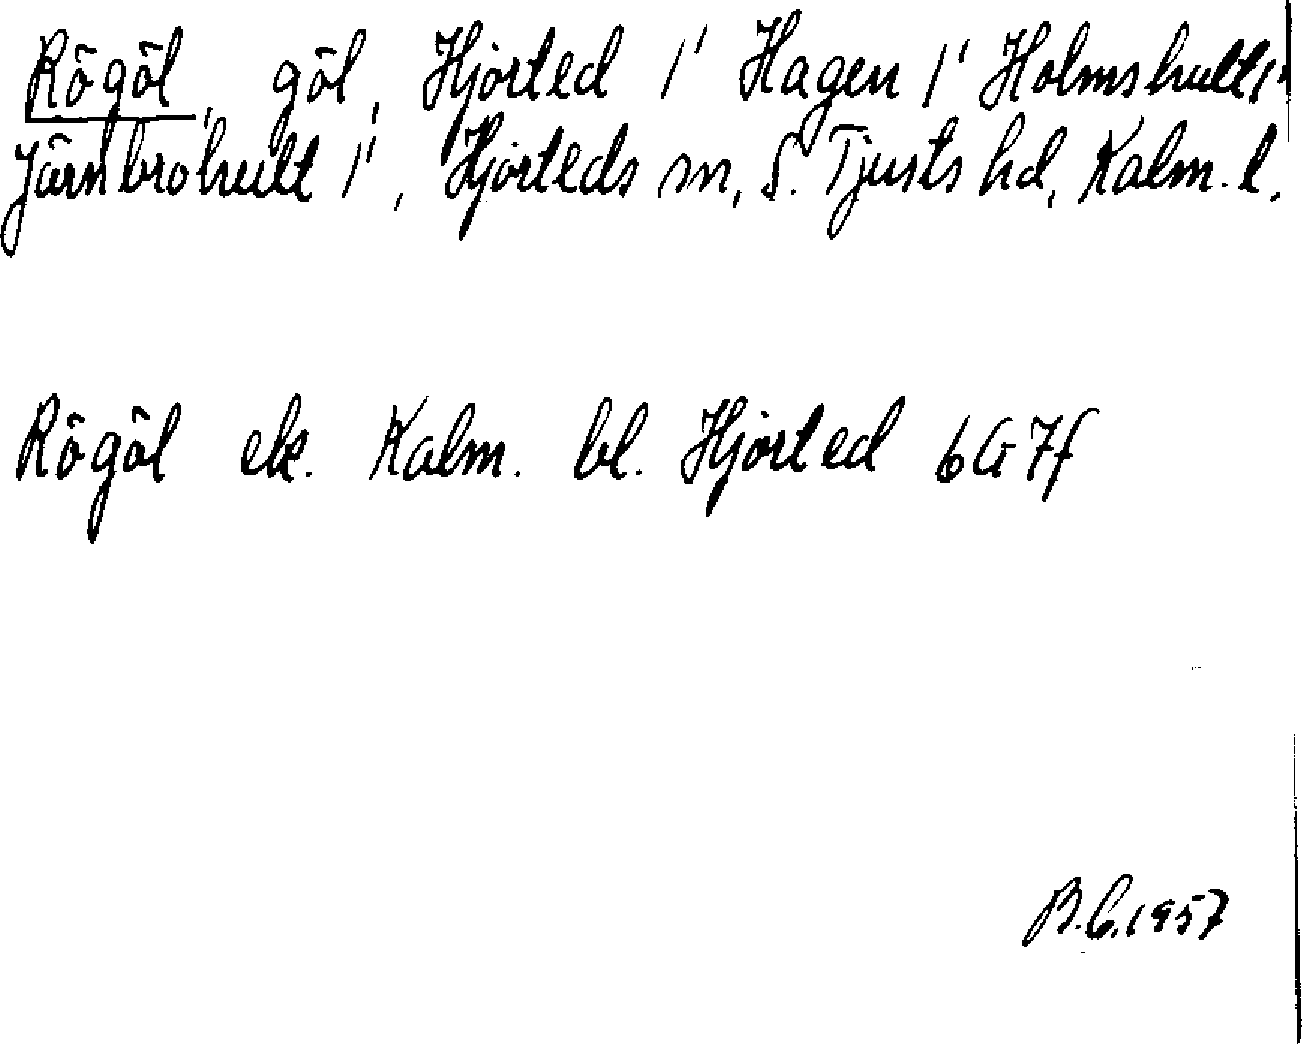 Rögöl, göl, Hjorted 1' Hagen 1' Holmshult 1"
Järnbrohult 1', Hjorteds sn, S. Tjusts hd, Kalm. l.
Rögöl ek. Kalm. bl. Hjorted 6G 7f
B.C. 1957